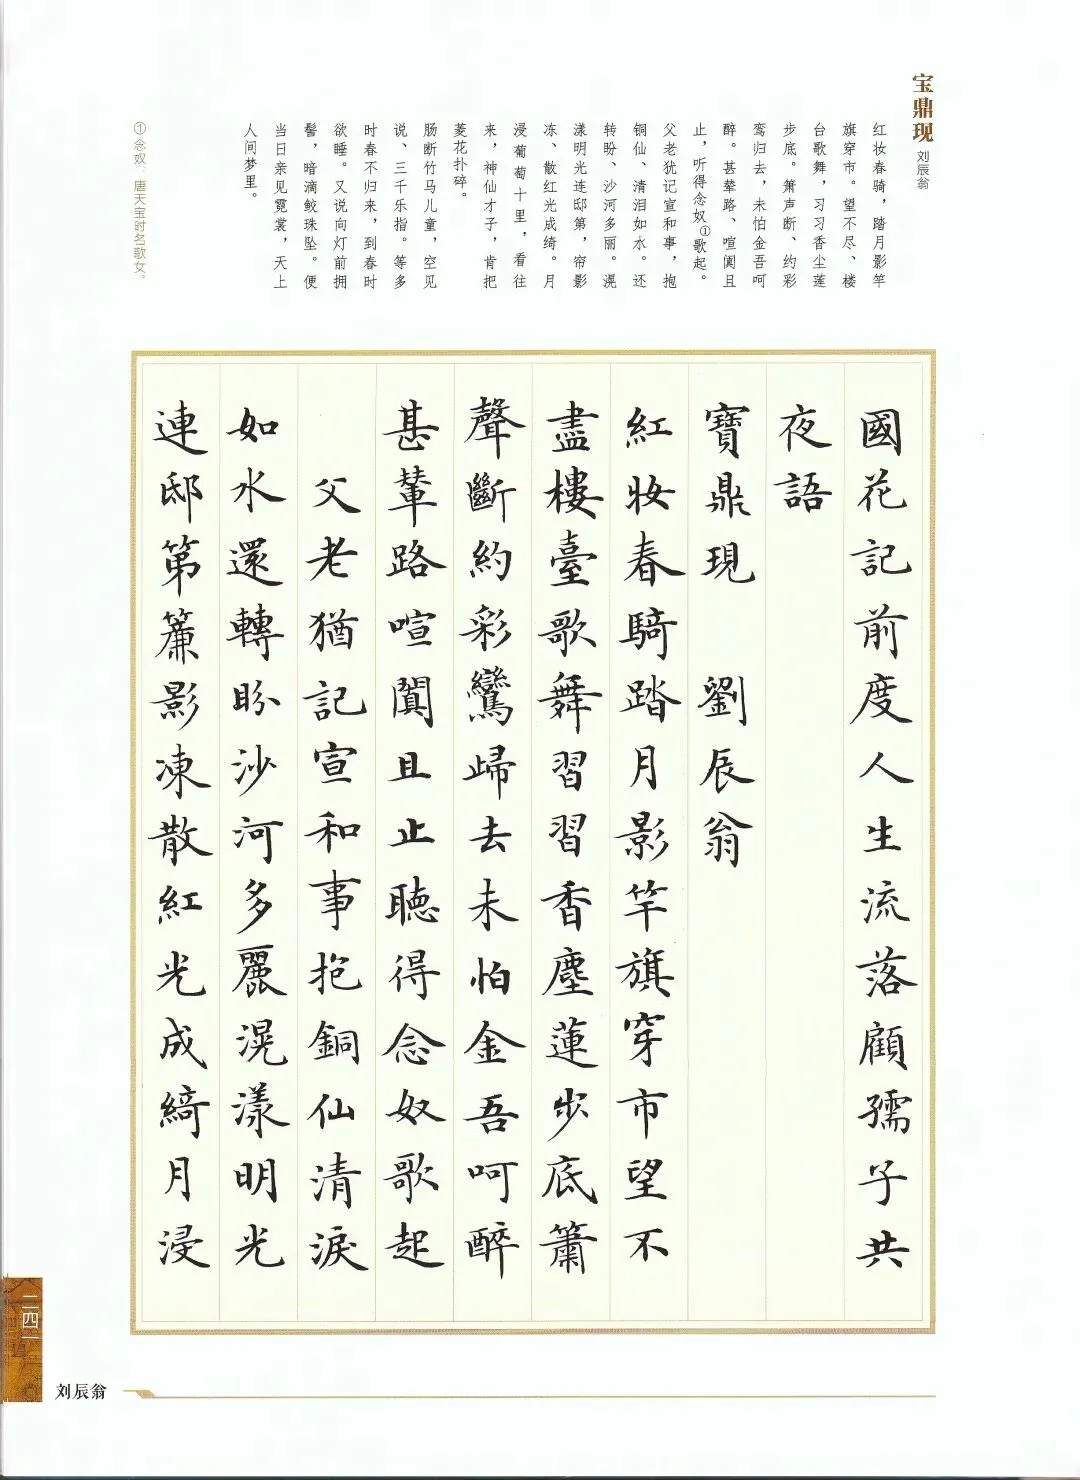 宝鼎现
刘辰翁
红妆春骑，踏月影竿
旗穿市。望不尽、楼
台歌舞，习习香尘莲
步底。箫声断、约彩
鸾归去，未怕金吾呵
醉。甚辇路、喧阗且
止，听得念奴①歌起。
父老犹记宣和事，抱
铜仙、清泪如水。还
转盼、沙河多丽。滉
漾明光连邸第，帘影
冻、散红光成绮。月
浸葡萄十里，看往
来，神仙才子，肯把
菱花扑碎。
肠断竹马儿童，空见
说、三千乐指。等多
时春不归来，到春时
欲睡。又说向灯前拥
髻，暗滴鲛珠坠。便
当日亲见霓裳，天上
人间梦里。
①念奴：唐天宝时名歌女。
國花記前度人生流落顧孺子共
夜語
寶鼎現 劉辰翁
紅妝春騎踏月影竿旗穿市望不
盡樓臺歌舞習習香塵蓮步底簫
聲斷約彩鸞歸去未怕金吾呵醉
甚輦路喧闐且止聽得念奴歌起
父老猶記宣和事抱銅仙清淚
如水還轉盼沙河多麗滉漾明光
連邸第簾影凍散紅光成綺月浸
二四一
刘辰翁